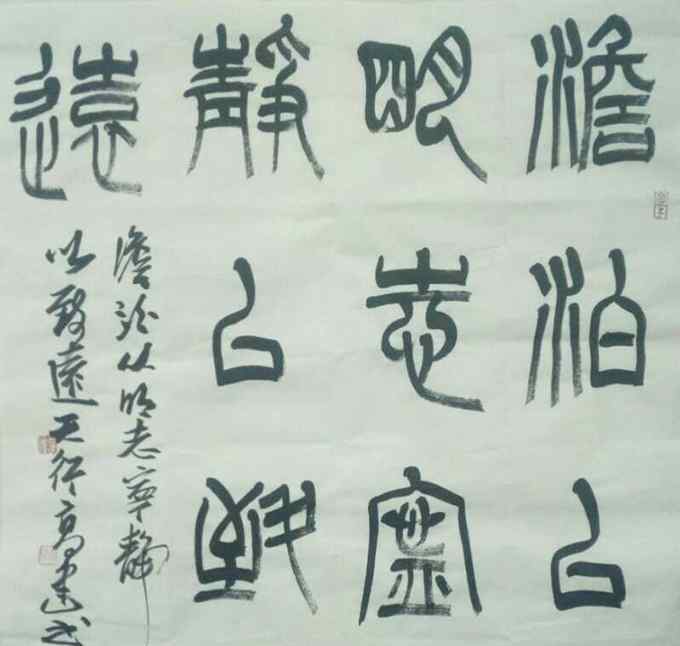 澹泊以
明志寧
靜以致
遠
澹泊以明志寧靜
以致遠天行高